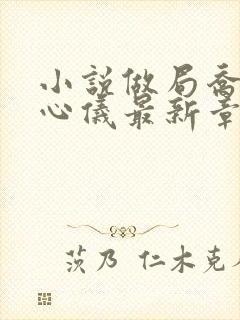 小说做局乔
心仪最新章
茨乃 仁木克